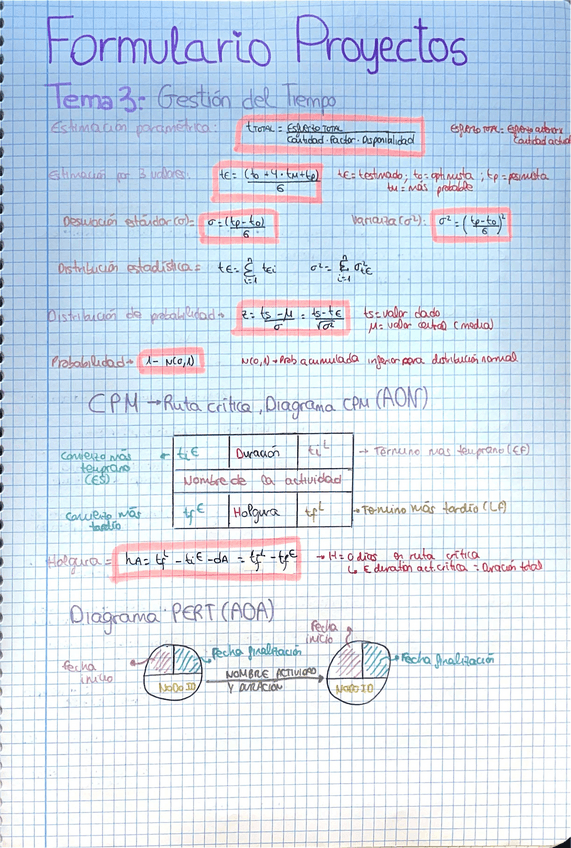 Formulario Proyectos
Tema 3: Gestión del Tiempo
Estimación paramétrica: t_TOTAL = Esfuerzo TOTAL / Cantidad · Factor · Disponibilidad
Esfuerzo TOTAL =
Estimación por 3 valores: tε = (to + 4 · tμ + tp) / 6 tε = testimado; to = optimista; tp = pesimista
tμ = más probable
Desviación estándar (σ) = σ = (tp - to) / 6 Varianza (σ²): σ² = ((tp - to) / 6)²
Distribución estadística = tε = Σ(i=1, n) tεi σ² = Σ(i=1, n) σ²iε
Distribución de probabilidad → z = (ts - μ) / σ = (ts - tε) / √σ² ts = valor dado
μ = valor central (media)
Probabilidad → 1 - N(0,1) N(0,1) → Prob acumulada inferior para distribución normal
CPM → Ruta crítica, Diagrama CPM (AON)
Comienzo más temprano (ES) ← ti^E Duración ti^L → Término más temprano (EF)
Nombre de la actividad
Comienzo más tardío ← tf^E Holgura tf^L → Término más tardío (LF)
Holgura = hA = tf^L - ti^E - dA = tf^L - tf^E → H = 0 días en ruta crítica
↳ Σ duración act. crítica = Duración total
Diagrama PERT (AOA)
Fecha inicio
Fecha finalización
NODO ID
NOMBRE ACTIVIDAD
Y DURACIÓN
Fecha inicio
Fecha finalización
NODO ID